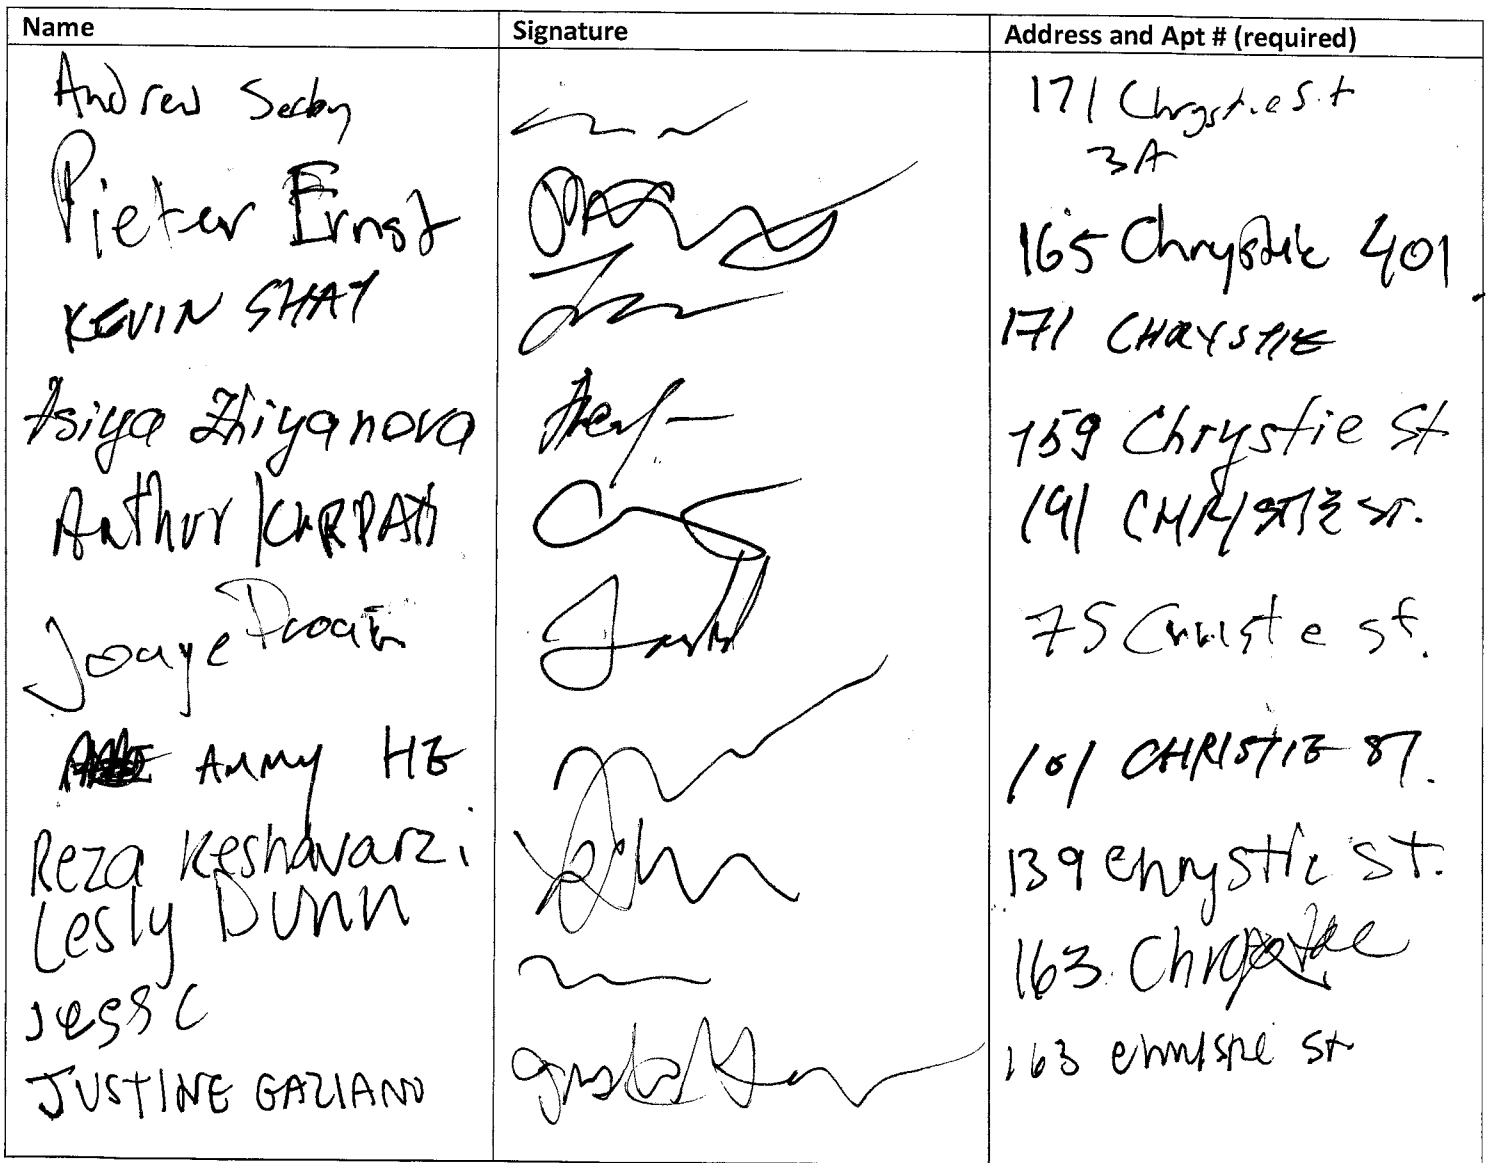 Name Signature Address and Apt # (required)
Andrew 171 Chrystie St
3A
Pieter Ernst 165 Chrystie 401
KEVIN SHAY 171 CHRYSTIE
Asiya Zhiyanova 159 Chrystie St
Arthur KARPATI 191 CHRISTIE ST.
75 st.
AMMY HE 101 CHRISTIE ST.
Reza Keshavarzi 139 Chrystie St.
Lesly Dunn 163 Chrystie
Jess C
JUSTINE GAZIANO 163 St